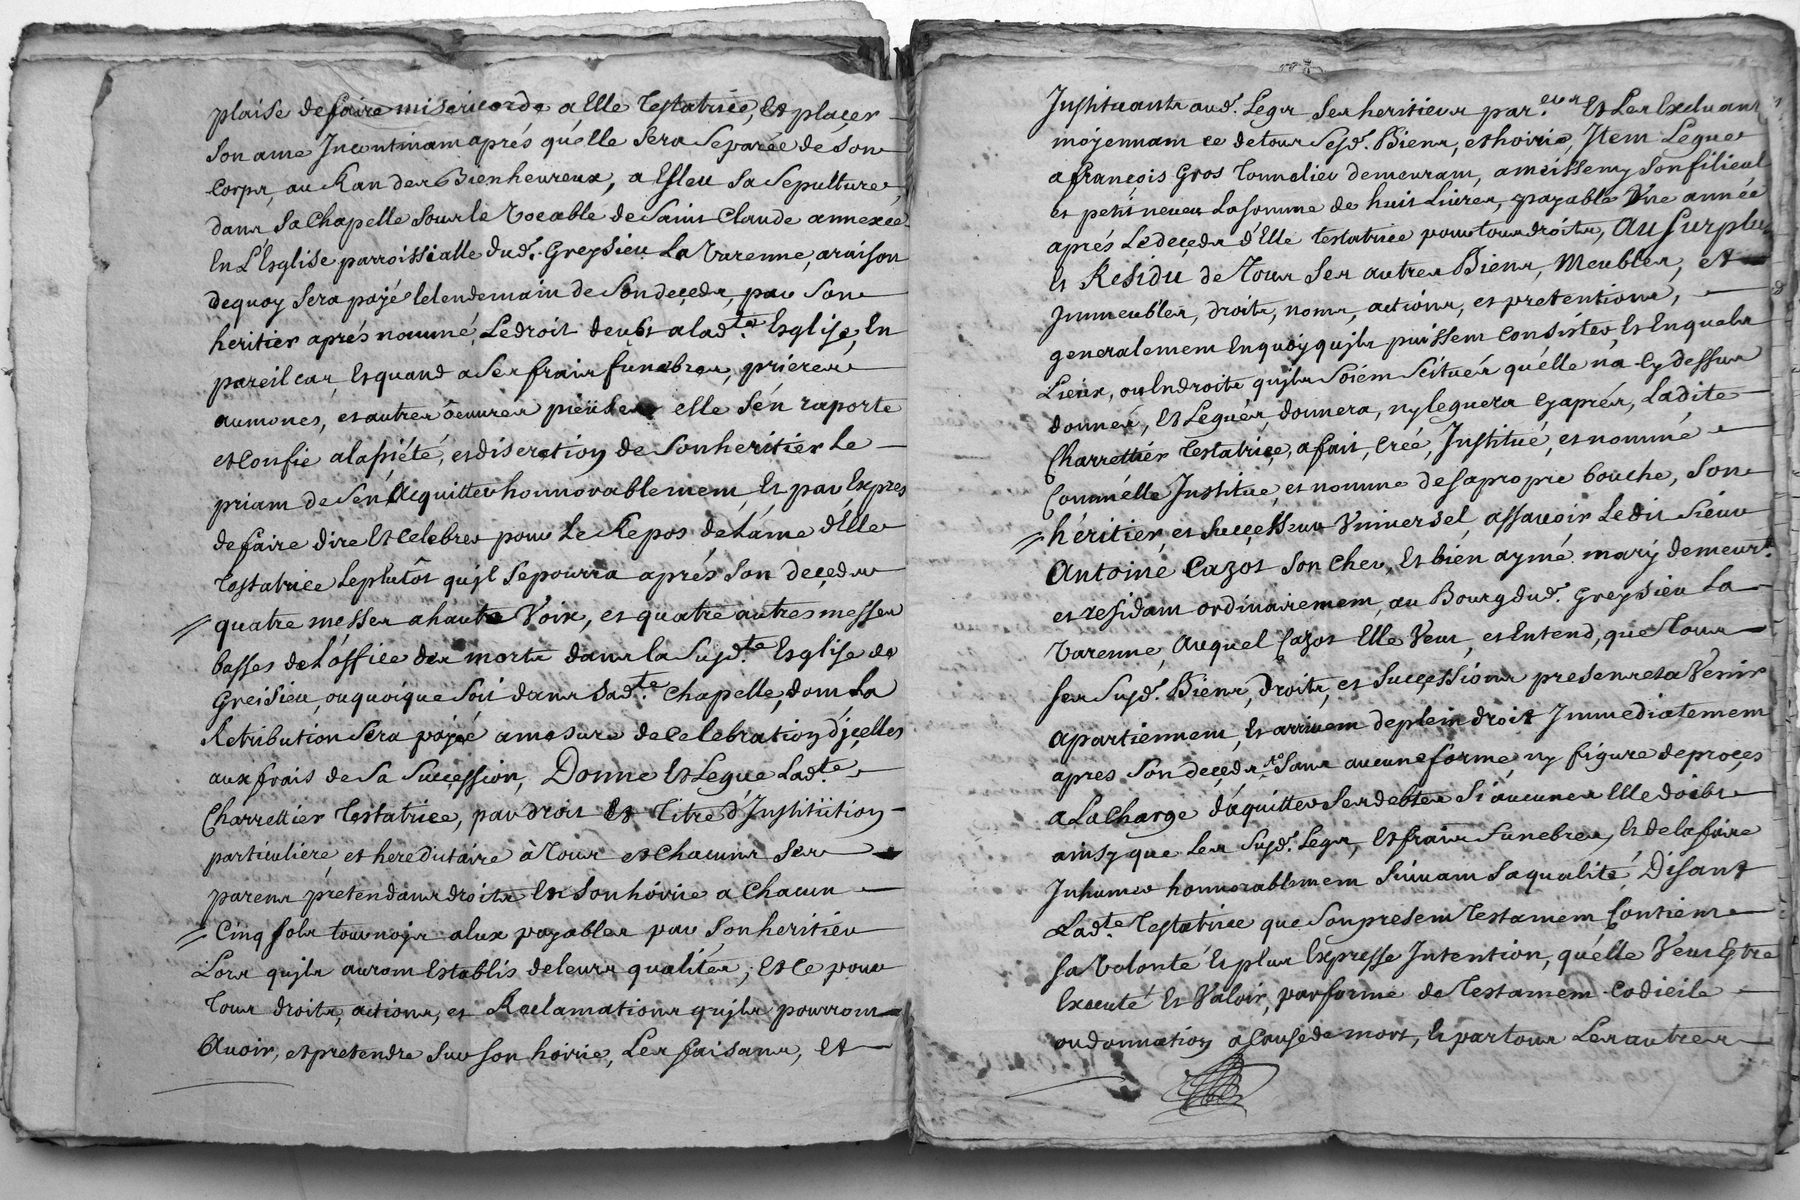 plaise de faire misericorde a Elle Testatrice, Et placer
Son ame Incontinant aprés qu'elle Sera Separée de Son
Corps, au Ran des Bienheureux, a Esleu Sa Sepulture
dans Sa Chapelle Sous le Vocable de Saint Claude annexée
En L'Esglise parroissialle dud. Greysieu La Varenne, araison
dequoy Sera payé le lendemain de Son deçeds, par Son
heritier aprés nommé, Le droit deubt a lad.te Esglise, En
pareil cas, Et quand a Ses frais funebres, prieres
aumones, et autres oeuvres piëüses elle S'en raporte
et Confie a la piété, et discretion de Son heritier Le
priant de S'en Acquitter honnorablement, Et par Expres
de faire dire Et Celebrer pour Le Repos de L'ame d'Elle
Testatrice Le plutôt qu'jl Se pourra aprés Son deçeds
quatre messes a haute Voix, et quatre autres messes
basses de L'office des morts dans la Susd.te Esglise de
Greisieu, ou quoique Soit dans Sad.te Chapelle, dont La
Retribution Sera payée a mesure de Celebration d'jçelles
aux frais de Sa Sucçession, Donne Et Legue Lad.te
Charrettier Testatrice, par droit Et Titre d'Institütion
particuliere et hereditaire à Tous et Chacuns Ses
parens prétendans droits En Son hoirie a Chacun
Cinq Sols tournois a Eux payables par Son heritier
Lors qu'jls auront Establis de leurs qualites; Et Ce pour
Tous droits, actions, et Reclamations qu'jls pourront
Avoir, et pretendre Sur Son hoirie, Les faisans, Et
Instituants aud. Legs Ses heritiers par.ers Et Les Excluant
moyennant ce de tous Sesd. Biens, et hoirie, Item Legue
a françois Gros Tonnelier demeurant, a Son filieul
et petit neveu La Somme de huit Livres, payable Une année
aprés Le deçeds d'Elle testatrice pour tous droits, Au Surplus
Et Residu de Tous Ses autres Biens, Meubles, et
Immeubles, droits, noms, actions, et pretentions,
generalement En quoy qu'jls puissent Consister, Et En quels
Lieux, ou Endroits qu'jls Soient Scitués qu'elle na Cy dessus
donnés, Et Legués, donnera, ny leguera Cy aprés, Ladite
Charrettier Testatriçe, a fait, Creé, Institué, et nommé
Comm'elle Institue, et nomme de Sa propre bouche, Son
héritier, et Sucçesseur Universel, assavoir Ledit Sieur
Antoine Cazot Son Cher, Et bien aymé mary demeurt.
et residant ordinairement, au Bourg dud. Greysieu La
Varenne, Auquel Cazot Elle Veut, et Entend, que Tous
Ses Susd. Biens, Droits, et Sucçessions presens et a Venir
apartiennent, Et arrivent de plein droit Immediatement
apres Son deçeds, Sans aucune forme, ny figure de proçes
a La Charge d'áquitter Ses debtes Si aucunes Elle doibt
ainsy que Les Susd. Legs, Et frais funebres, Et de la faire
Inhumer honnorablement Suivant Sa qualité, Disant
Lad.te Testatrice que Son present Testament Contient
Sa Volonté Et plus Expresse Intention, qu'elle Veut Estre
Executé Et Valoir, par forme de Testament Codicile
ou donnation a Cause de mort, Et par tous Les autres